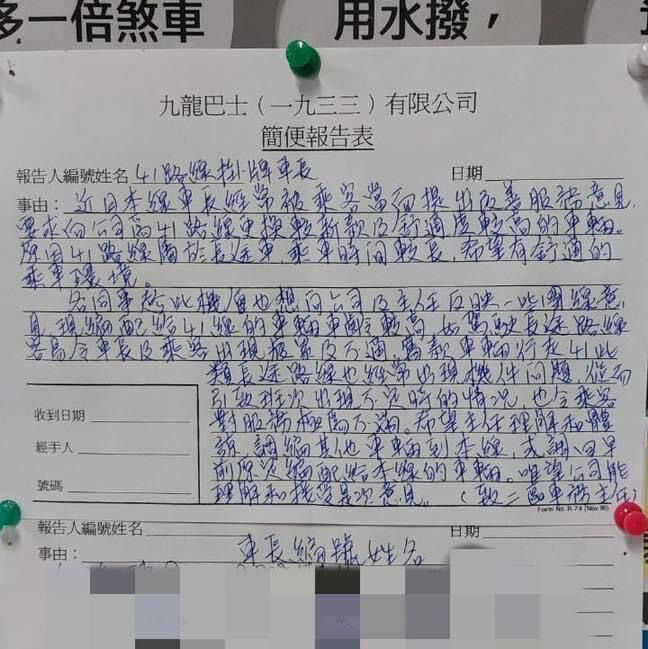 多一倍煞車
用水撥，
九龍巴士(一九三三)有限公司
簡便報告表
報告人編號姓名 41路線掛牌車長
日期
事由： 近日本線車長經常被乘客當面提出改善服務意見，
要求向公司為41路線更換較新款及舒適度較高的車輛。
原因41路線屬於長途車，乘車時間較長，希望有舒適的
乘車環境。
各同事趁此機會也想向公司及主任反映一些團線意
見，現編配給41線的車輛車齡較高，如駕駛長途路線
容易令車長及乘客出現疲累及不適，舊款車輛行走41此
類長途路線也經常出現機件問題，從而
引致班次出現不定時的情況，也令乘客
對服務極為不滿。希望主任理解和體
諒，調編其他車輛到本線，或調回早
前原定編配給本線的車輛。唯望公司能
理解和接受是次意見。（致二區車務主任）
收到日期
經手人
號碼
Form No. R-74 (Nov 96)
報告人編號姓名
日期
事由：
車長編號姓名